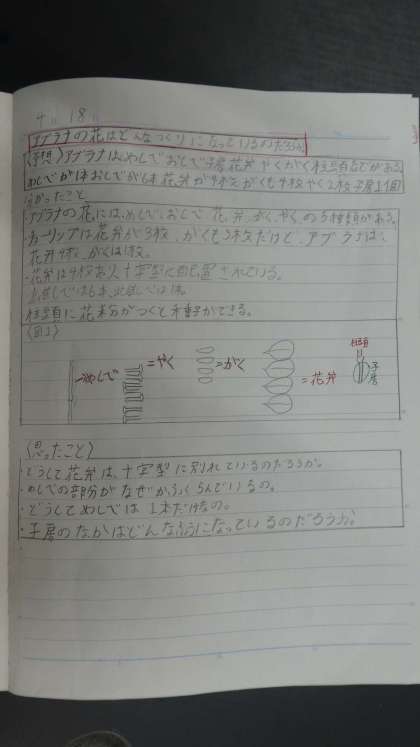 4 18
アブラナの花はどんなつくりになっているのだろうか
〈予想〉アブラナは、めしべおしべ子房花弁やくがく柱頭などがある。
めしべが1本おしべが6本花弁が4枚がくも4枚やく2枚子房1個
分かったこと
・アブラナの花には、めしべ、おしべ花弁、がく、やくの5種類がある。
チューリップは花弁が3枚、がくも3枚だけど、アブラナは、
花弁4枚、がくは4枚。
・花弁は4枚あり十字型に配置されている。
おしべは6本、めしべは1本。
柱頭に花粉がつくと種ができる。
〈図〉
→めしべ =やく =がく =花弁 柱頭 子房
〈思ったこと〉
・どうして花弁は、十字型に別れているのだろうか。
・めしべの部分がなぜかふくらんでいるの。
・どうしてめしべは1本だけなの。
・子房のなかはどんなふうになっているのだろうか。